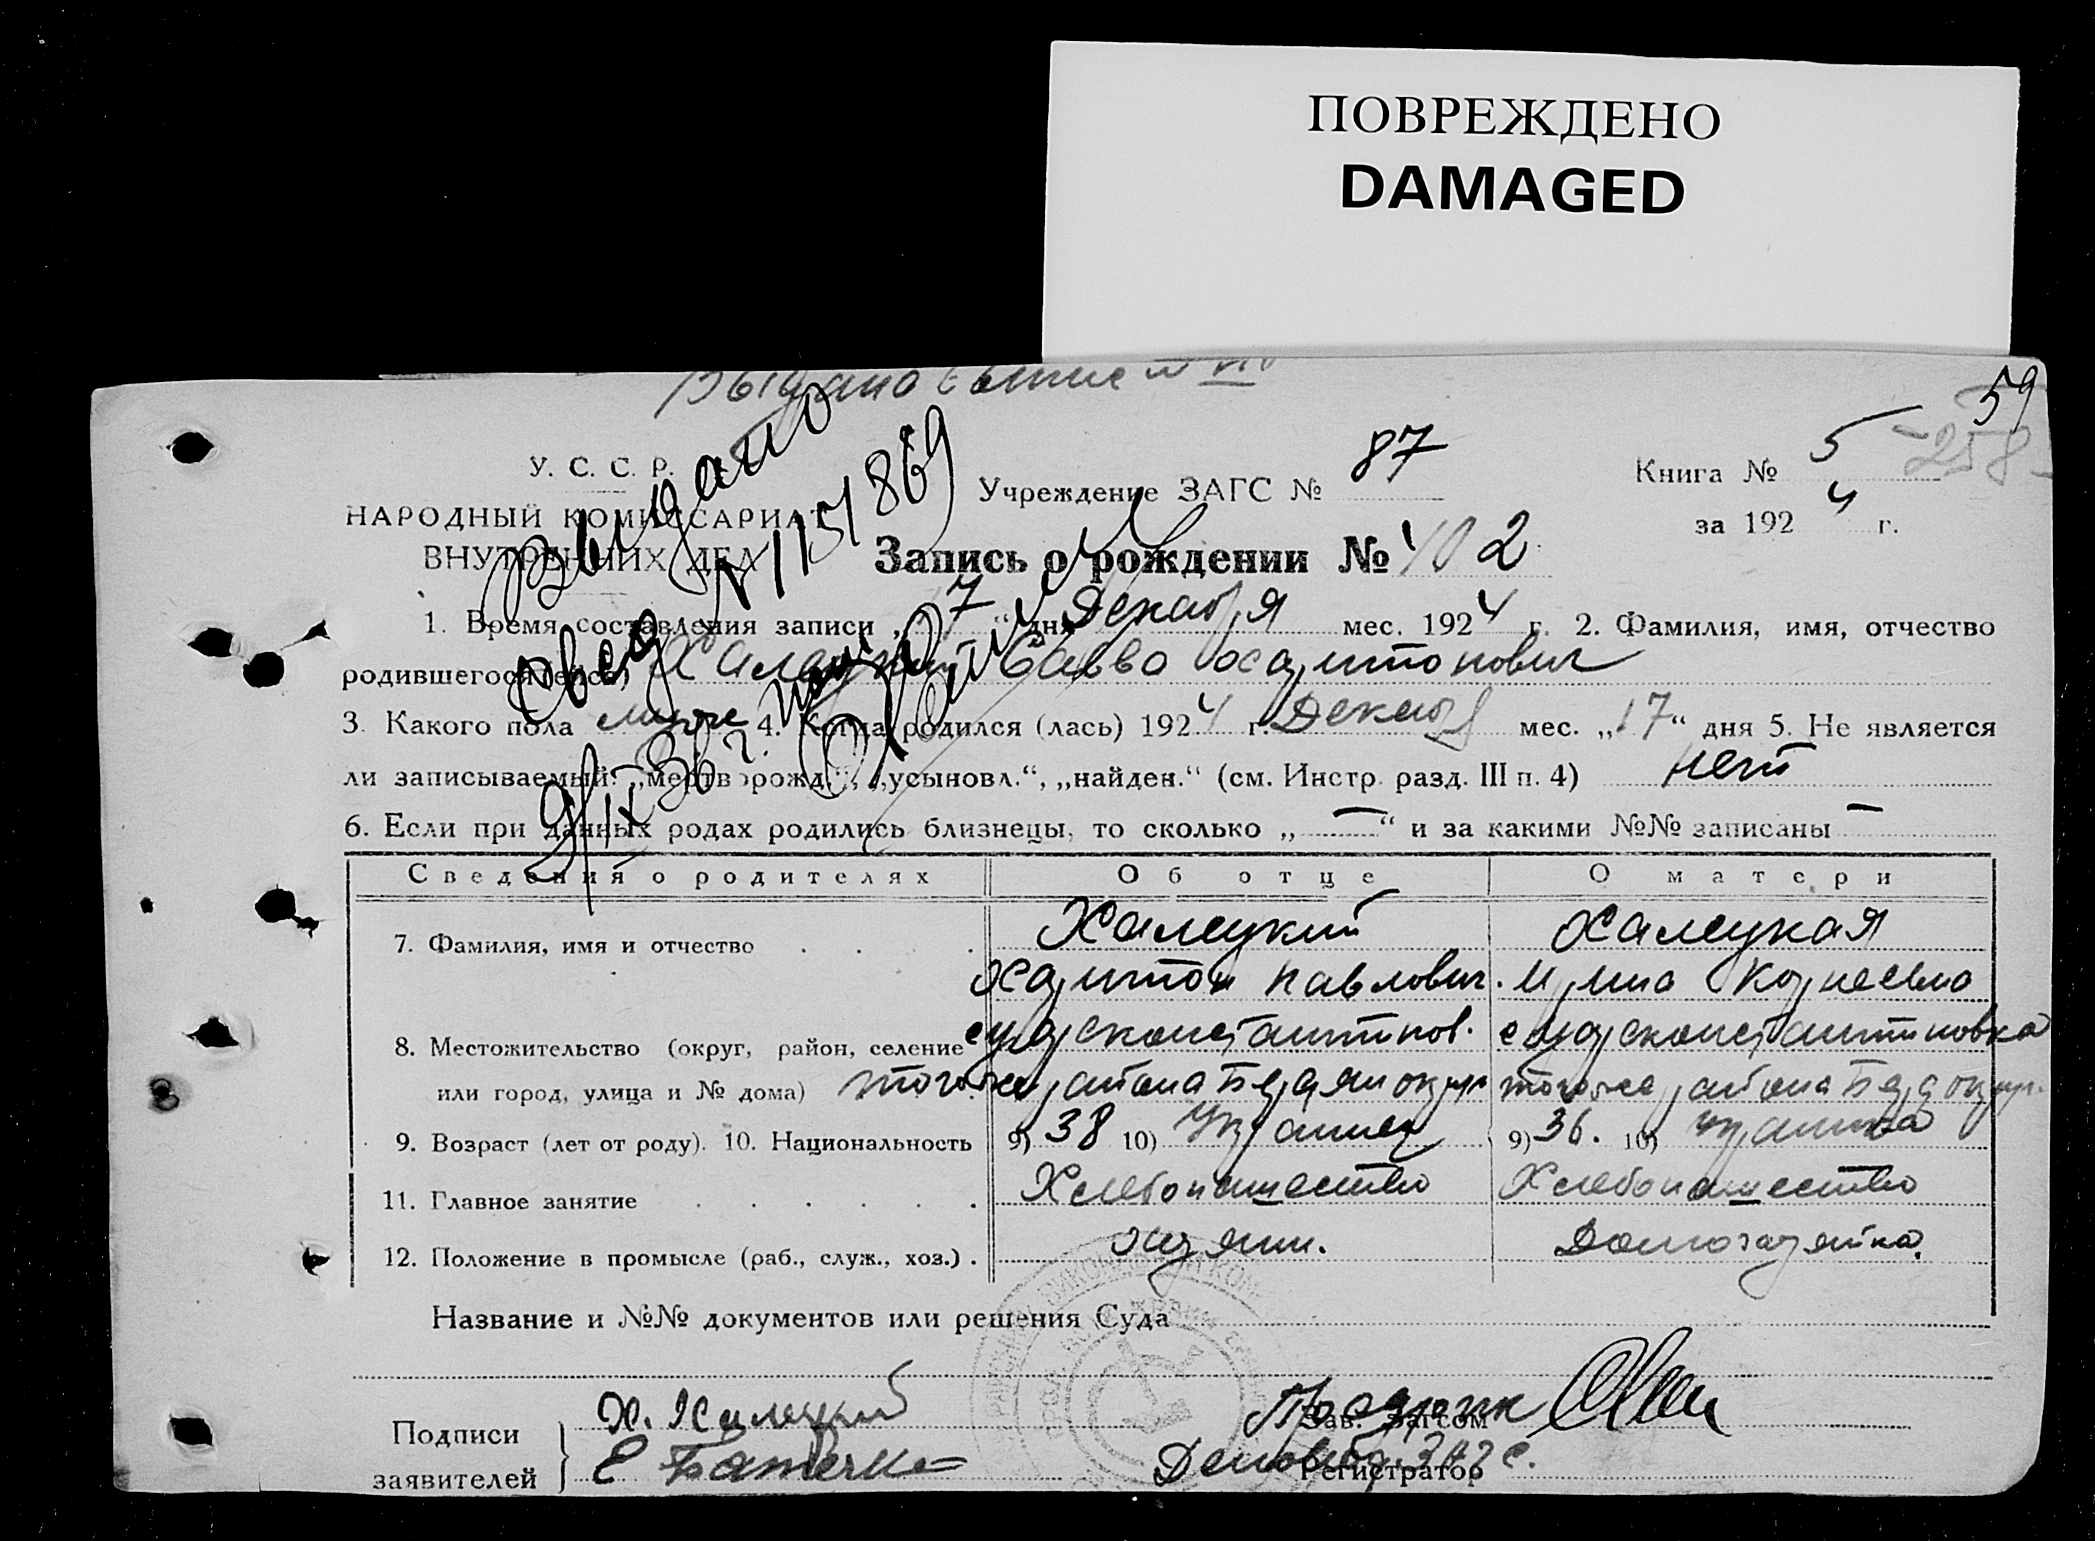 ПОВРЕЖДЕНО
DAMAGED
59
Выдано
258
У. С. С. Р.
НАРОДНЫЙ КОМИССАРИАТ
ВНУТРЕННИХ ДЕЛ
Учреждение ЗАГС № 87
Книга № 5
за 1924 г.
Выдано
N 1151869
9/IX 36 г.
Запись о рождении № 102
1. Время составления записи „17“ дня Декабря мес. 1924 г. 2. Фамилия, имя, отчество
родившегося (ейся) Халецкий Савва Харитонович
3. Какого пола муж 4. Когда родился (лась) 1924 г. Декабя мес. „17“ дня 5. Не является
ли записываемый: „мертворожд.“, „усыновл.“, „найден.“ (см. Инстр. разд. III п. 4) нет
6. Если при данных родах родились близнецы, то сколько „—“ и за какими №№ записаны —
Сведения о родителях Об отце О матери
7. Фамилия, имя и отчество Халецкий Халецкая
Харитон Павлович. Ирина Корнеевна
8. Местожительство (округ, район, селение
или город, улица и № дома) того же района Бердян округ того же района Берд округ.
9. Возраст (лет от роду). 10. Национальность 9) 38 10) Украинец 9) 36. 10) Украинка
11. Главное занятие Хлебопашество Хлебопашество
12. Положение в промысле (раб., служ., хоз.) Хозяин. Домохозяйка.
Название и №№ документов или решения Суда
Подписи заявителей
Х. Халецкий
Зав. Загсом
Е
Регистратор